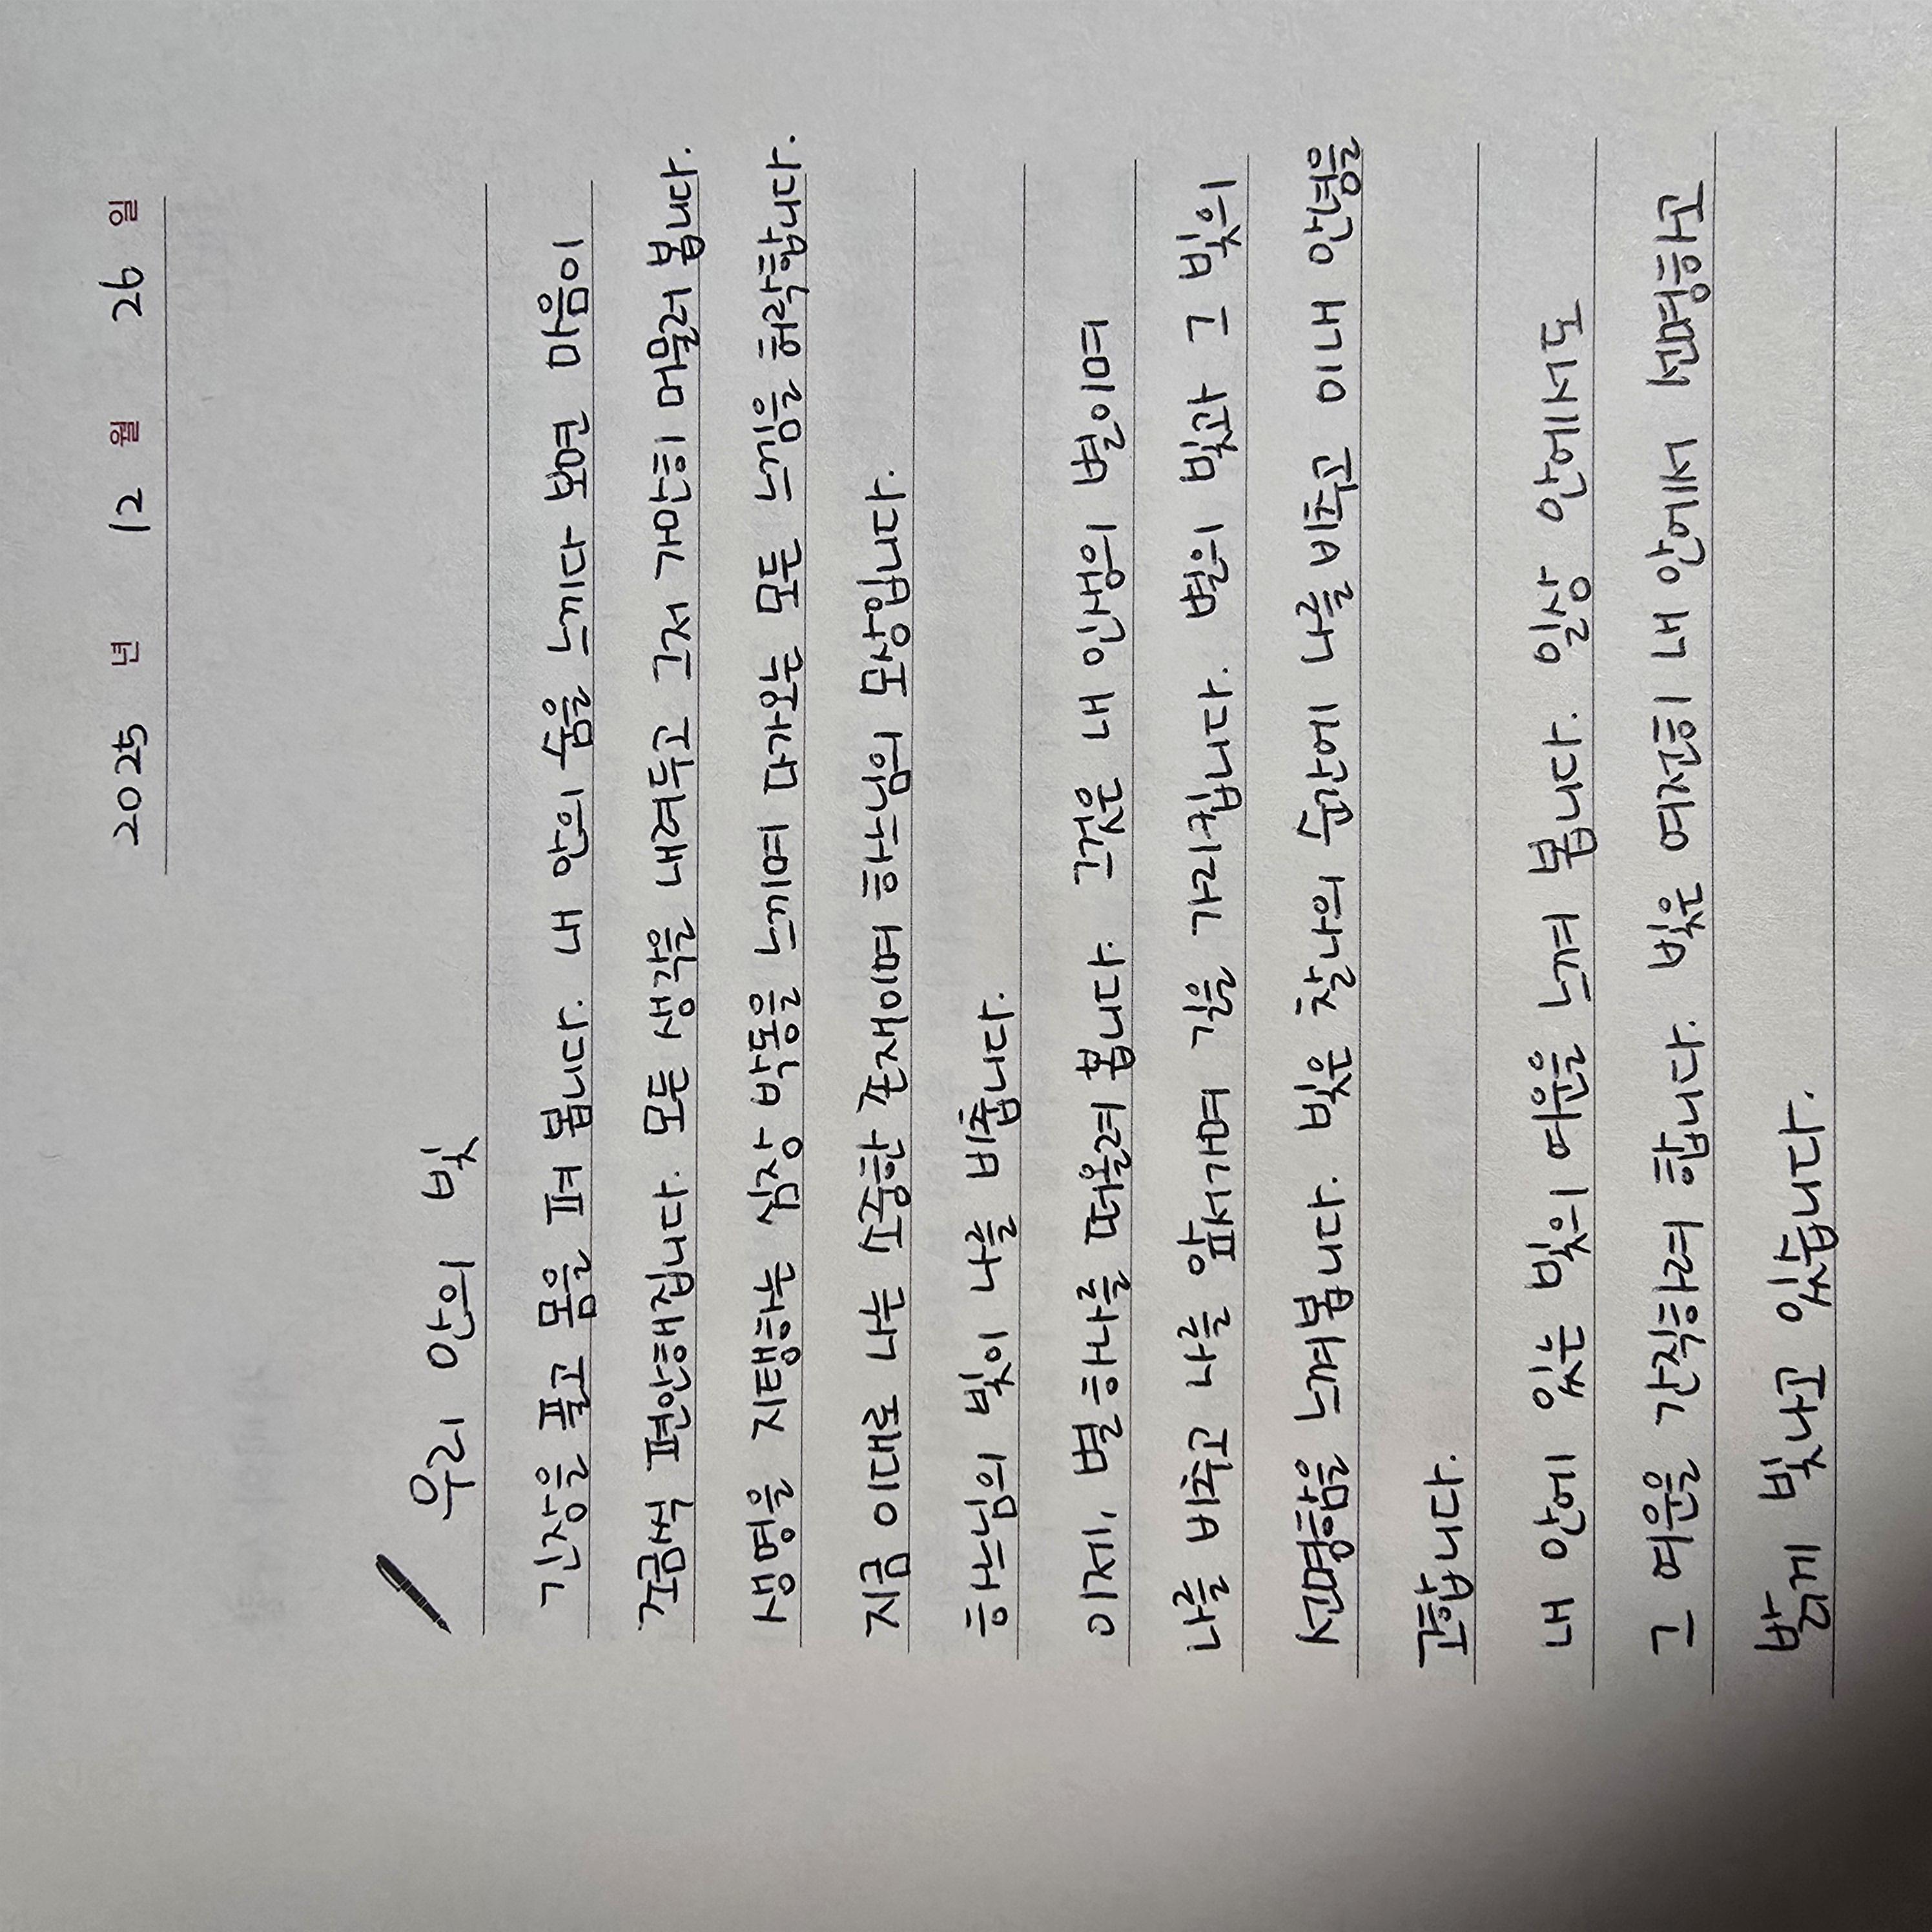 20 25 년 12 월 26 일
우리 안의 빛
긴장을 풀고 몸을 펴 봅니다. 내 안의 숨을 느끼다 보면 마음이
조금씩 편안해집니다. 모든 생각을 내려두고 그저 고요히 머물러 봅니다.
생명을 지탱해주는 심장 박동을 느끼며 모든 느낌을 허락합니다.
지금 이대로 나는 고유한 존재이며 하느님의 모상입니다.
하느님의 빛이 나를 비춥니다.
이제, 별 하나를 떠올려 봅니다. 그것은 내 인생의 별이며
나를 비추고 나를 길을 가리킵니다. 별의 빛과 그 빛의
선명함을 느껴봅니다. 빛은 찬란히 주변의 나를 비추고 이내
내 안에 있는 빛의 여운을 느껴 봅니다. 일상 안에서도
그 여운을 간직하려 합니다. 빛은 여전히 내 안에서 선명하고
밝게 빛나고 있습니다.